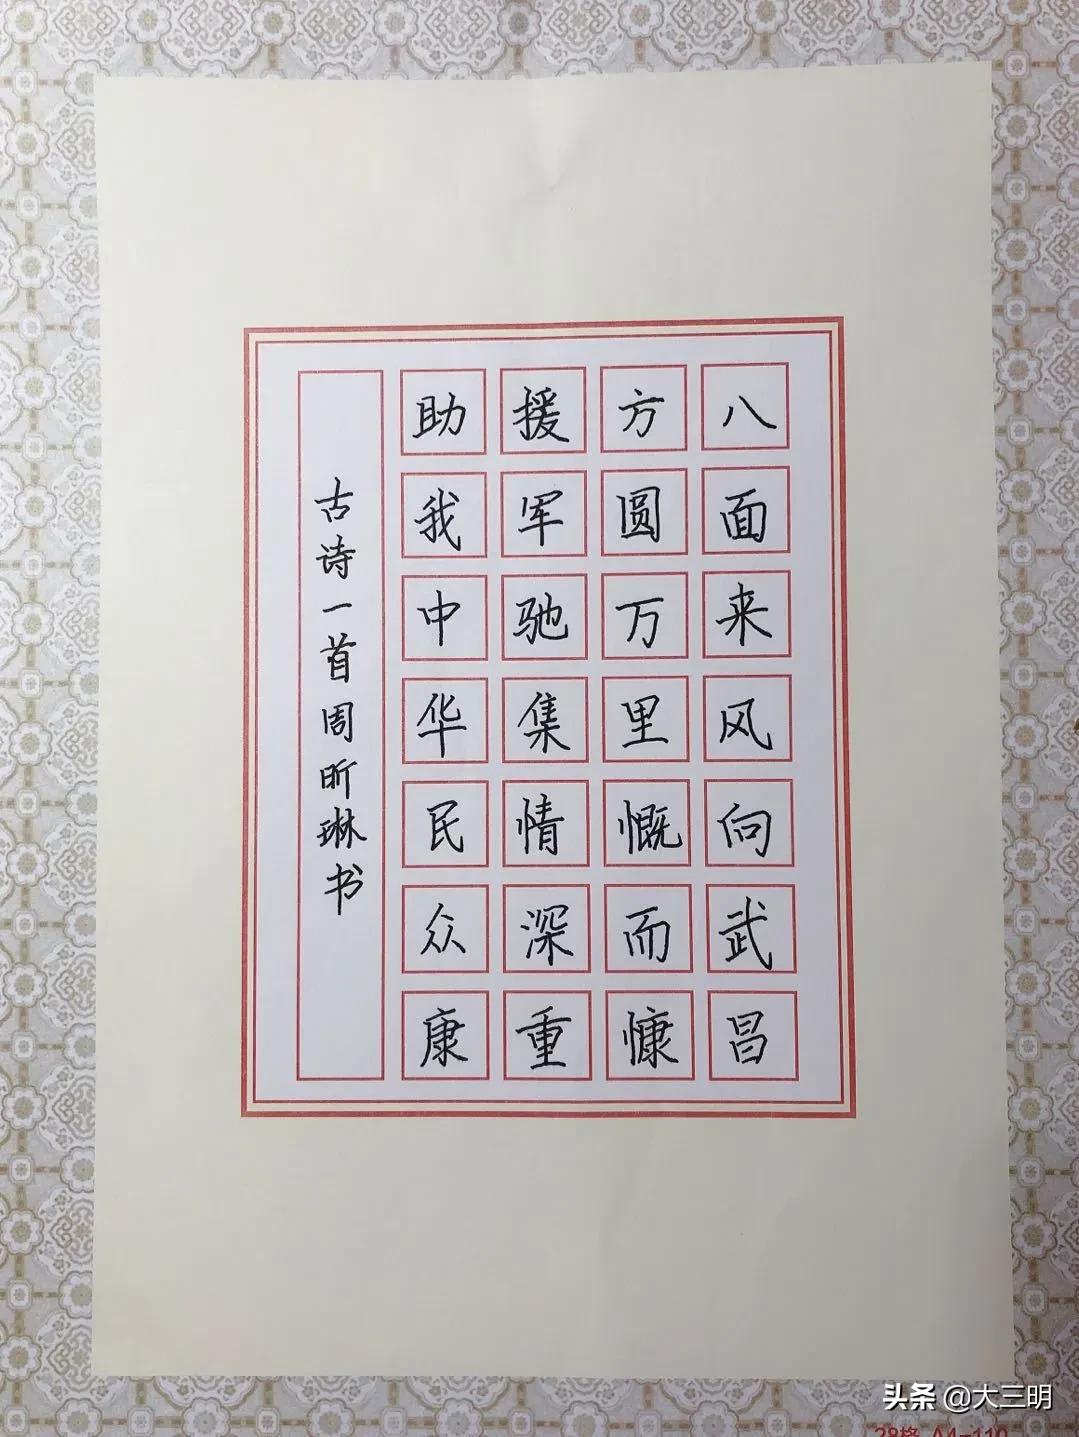 八面来风向武昌
方圆万里慨而慷
援军驰集情深重
助我中华民众康
古诗一首周昕琳书
头条@大三明
28格 A4-110